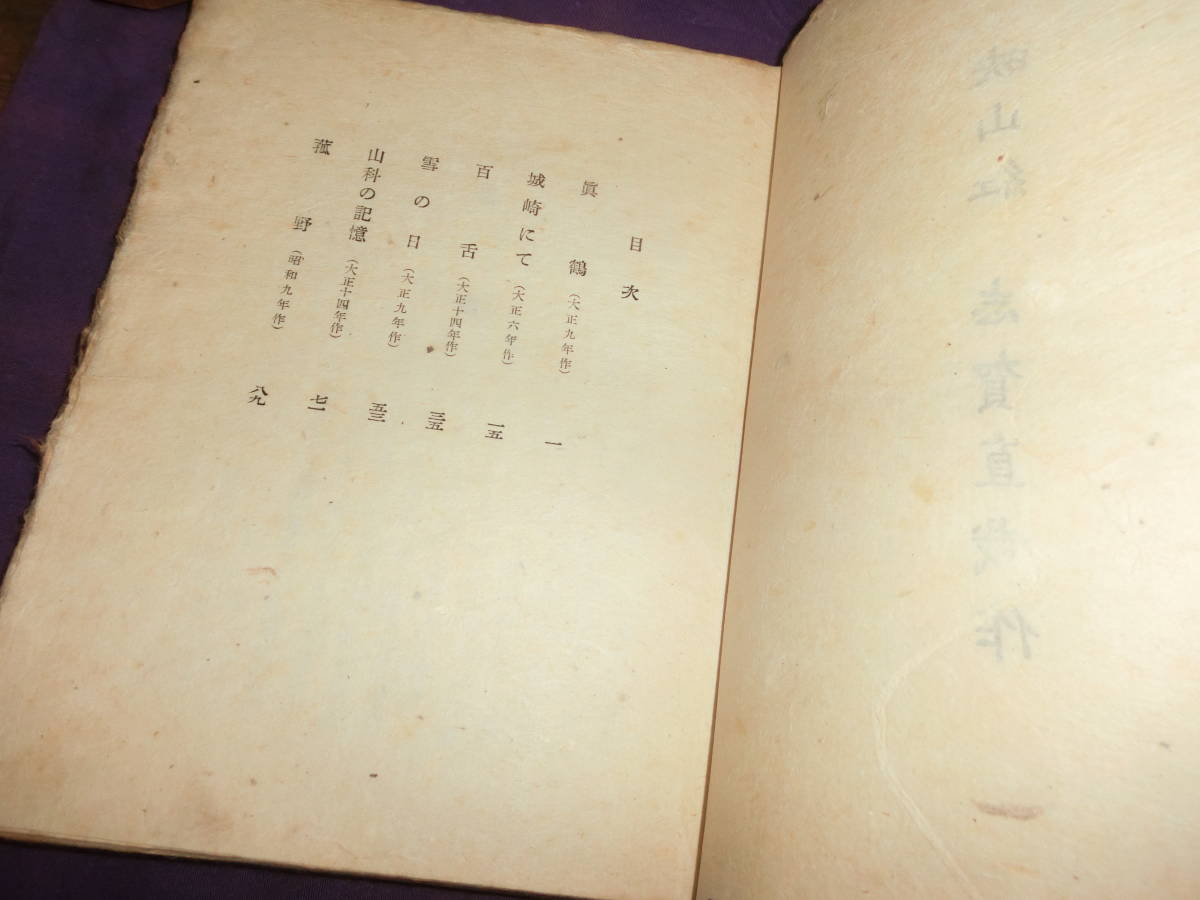 映山紅 志賀直哉作
目次
眞鶴（大正九年作） 一
城崎にて（大正六年作） 一五
百舌（大正十四年作） 三五
雪の日（大正九年作） 五三
山科の記憶（大正十四年作） 七一
菰野（昭和九年作） 八九